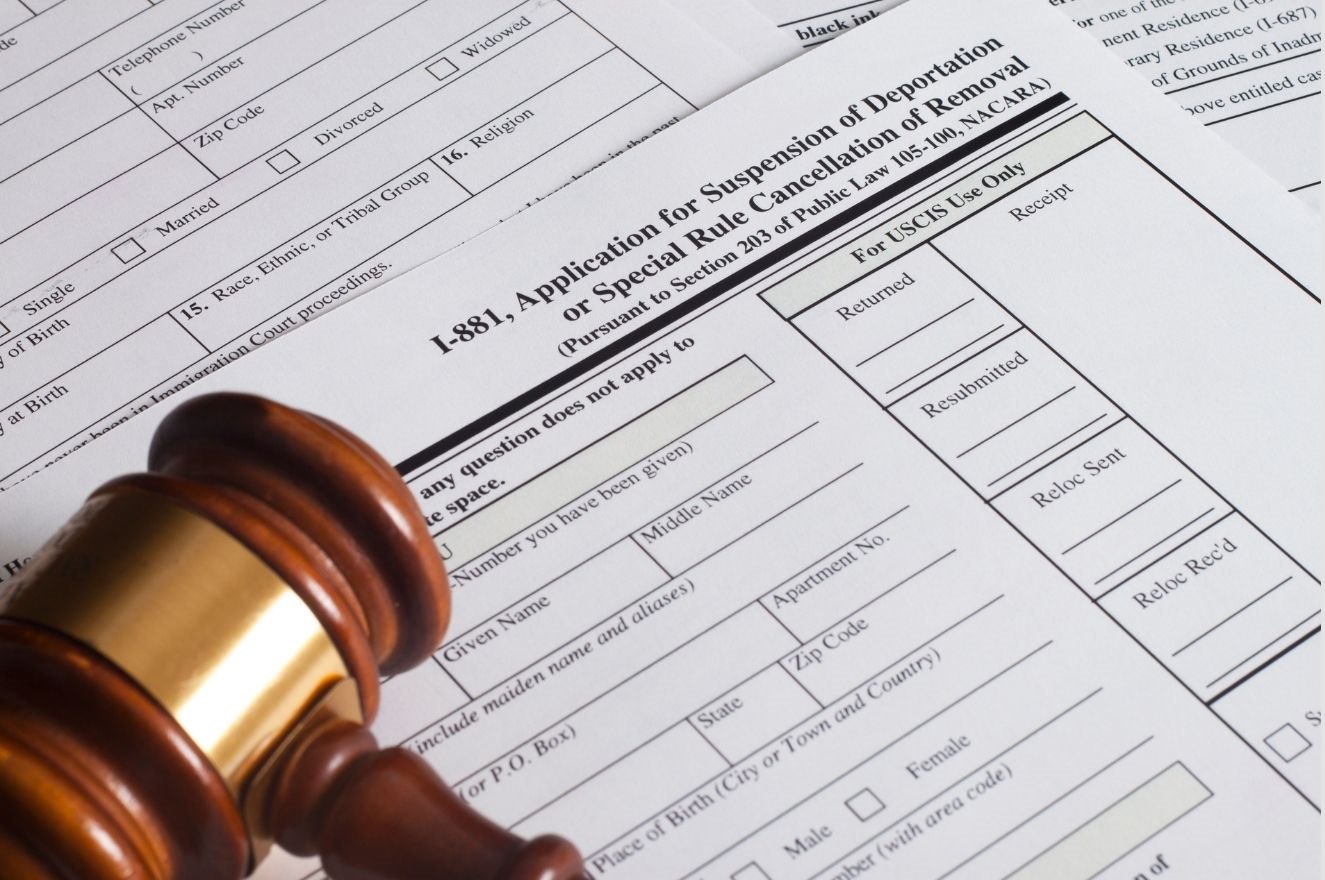 Telephone Number
( )
Apt. Number
Zip Code
Widowed
Divorced
Married
Single
16. Religion
15. Race, Ethnic, or Tribal Group
of Birth
at Birth
never been in Immigration Court proceedings.
black ink
for one of the
(I-687)
of Grounds of
entitled
I-881, Application for Suspension of Deportation
or Special Rule Cancellation of Removal
(Pursuant to Section 203 of Public Law 105-100, NACARA)
any question does not apply to
space.
For USCIS Use Only
Returned
Receipt
Resubmitted
Reloc Sent
Reloc Rec'd
-Number you have been given)
Given Name
Middle Name
(include maiden name and aliases)
(or P.O. Box)
Apartment No.
State
Zip Code
Place of Birth (City or Town and Country)
Male
Female
(with area code)
of